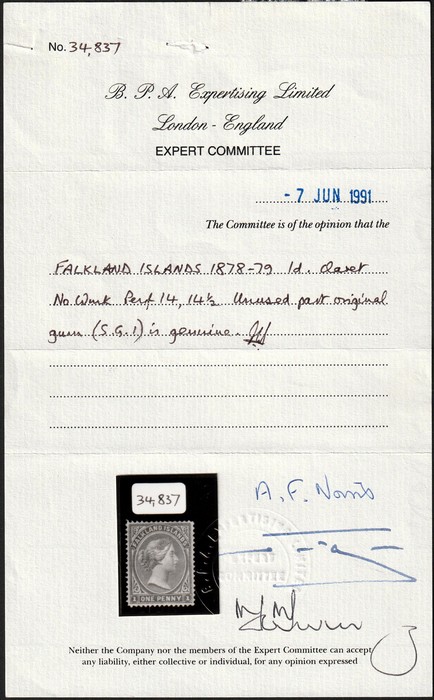 No. 34,837
B. P. A. Expertising Limited
London - England
EXPERT COMMITTEE
- 7 JUN 1991
The Committee is of the opinion that the
FALKLAND ISLANDS 1878-79 1d. claret
No Wmk Perf 14, 14½ Unused part original
gum (S.G.1) is genuine.
34,837
FALKLAND ISLANDS
1 ONE PENNY 1
A. F. Norris
COMMITTEE
Neither the Company nor the members of the Expert Committee can accept
any liability, either collective or individual, for any opinion expressed